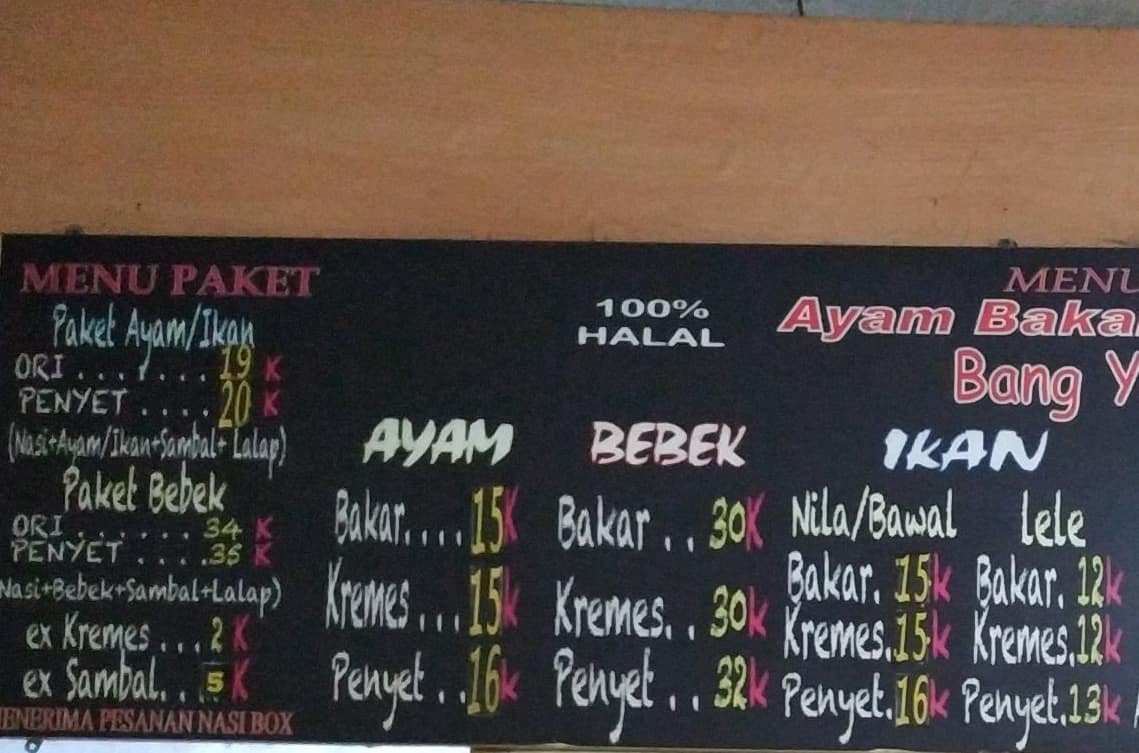 MENU PAKET
Paket Ayam/Ikan
ORI . . . . . . . 19 K
PENYET . . . . 20 K
(Nasi+Ayam/Ikan+Sambal+ Lalap)
Paket Bebek
ORI . . . . . . . 34 K
PENYET . . . . .35 K
Nasi+Bebek+Sambal+Lalap)
ex Kremes . . . 2 K
ex Sambal. . . 5 K
ENERIMA PESANAN NASI BOX
100%
HALAL
MENU
Ayam Baka
Bang Y
AYAM
Bakar. . . . 15K
Kremes . . . 15k
Penyet . . 16k
BEBEK
Bakar . . 30K
Kremes. . 30k
Penyet . . 32k
IKAN
Nila/Bawal
Bakar. 15k
Kremes.15k
Penyet.16k
lele
Bakar. 12k
Kremes.12k
Penyet.13k